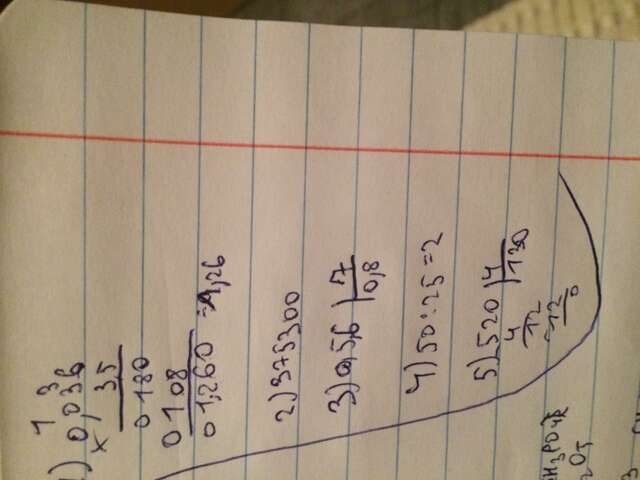 1) 0,036
× 35
0180
0108
01,260 = 1,26
2) 375300
3) 0,5,6 | 7
0,8
4) 50:25=2
5) 520 | 4
4 130
12
12
0